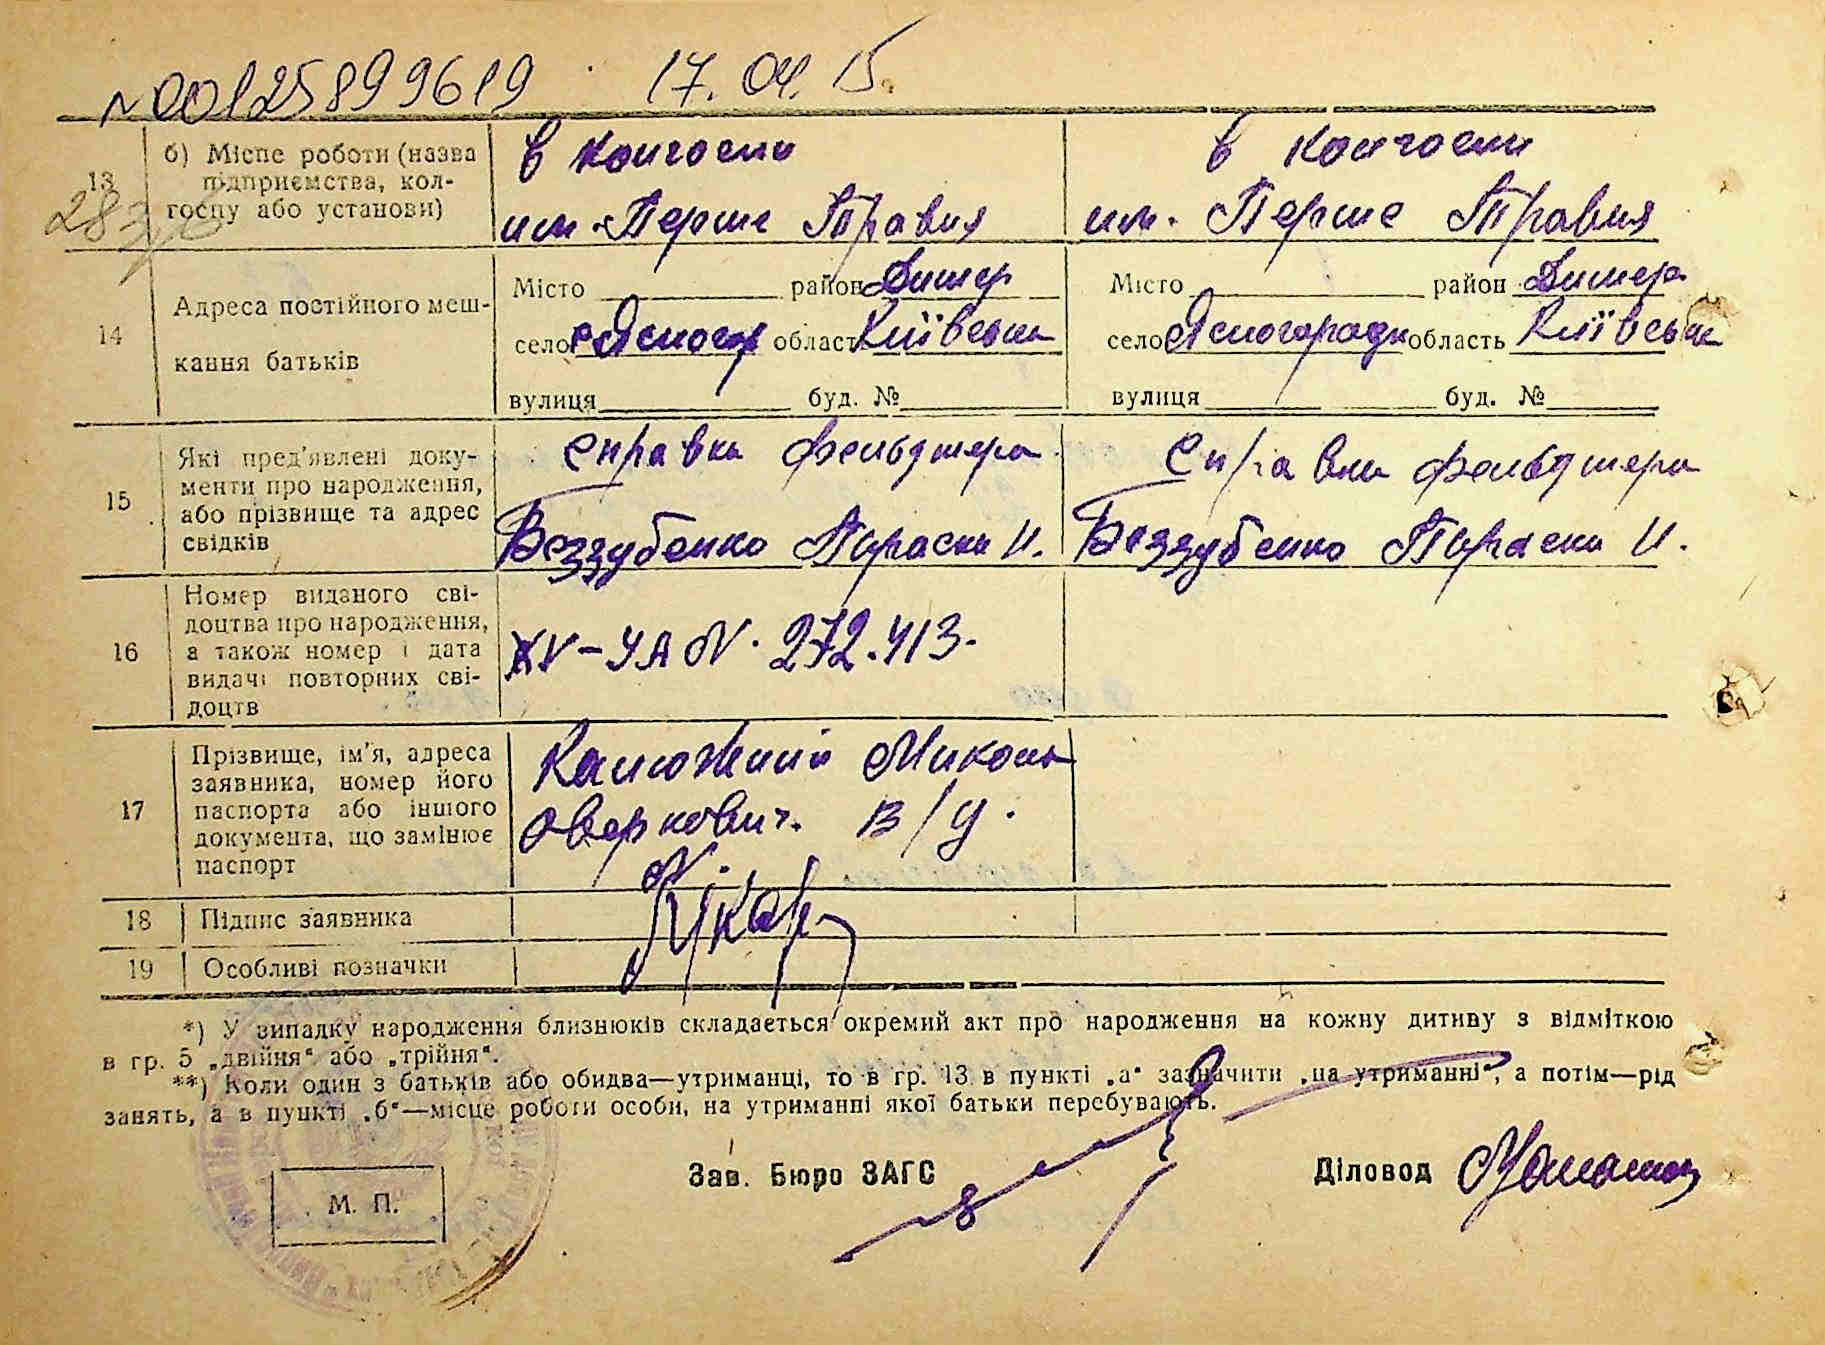 №00125899619 17.04.15.
13 б) Місце роботи (назва підприємства, колгоспу або установи)
283
в колгоспі в колгоспі
им. Перше Травня им. Перше Травня
14 Адреса постійного меш-
кання батьків
Місто район Димер Місто район Димер
село Ясногор область Київська село Ясногородк область Київська
вулиця буд. № вулиця буд. №
15 Які пред'явлені доку-
менти про народження,
або прізвище та адрес
свідків
Справка фельдшера Справка фельдшера
Беззубенко Параска И. Беззубенко Параска И.
16 Номер виданого сві-
доцтва про народження,
а також номер і дата
видачі повторних сві-
доцтв
XV-УА № 272.413.
17 Прізвище, ім'я, адреса
заявника, номер його
паспорта або іншого
документа, що замінює
паспорт
Калюжний Микола
Оверкович. В/у.
18 Підпис заявника
19 Особливі позначки
*) У випадку народження близнюків складається окремий акт про народження на кожну дитину з відміткою
в гр. 5 „двійня“ або „трійня“.
**) Коли один з батьків або обидва—утриманці, то в гр. 13 в пункті „а“ зазначити „на утриманні“, а потім—рід
занять, а в пункті „б“—місце роботи особи, на утриманні якої батьки перебувають.
Зав. Бюро ЗАГС Діловод
М. П.